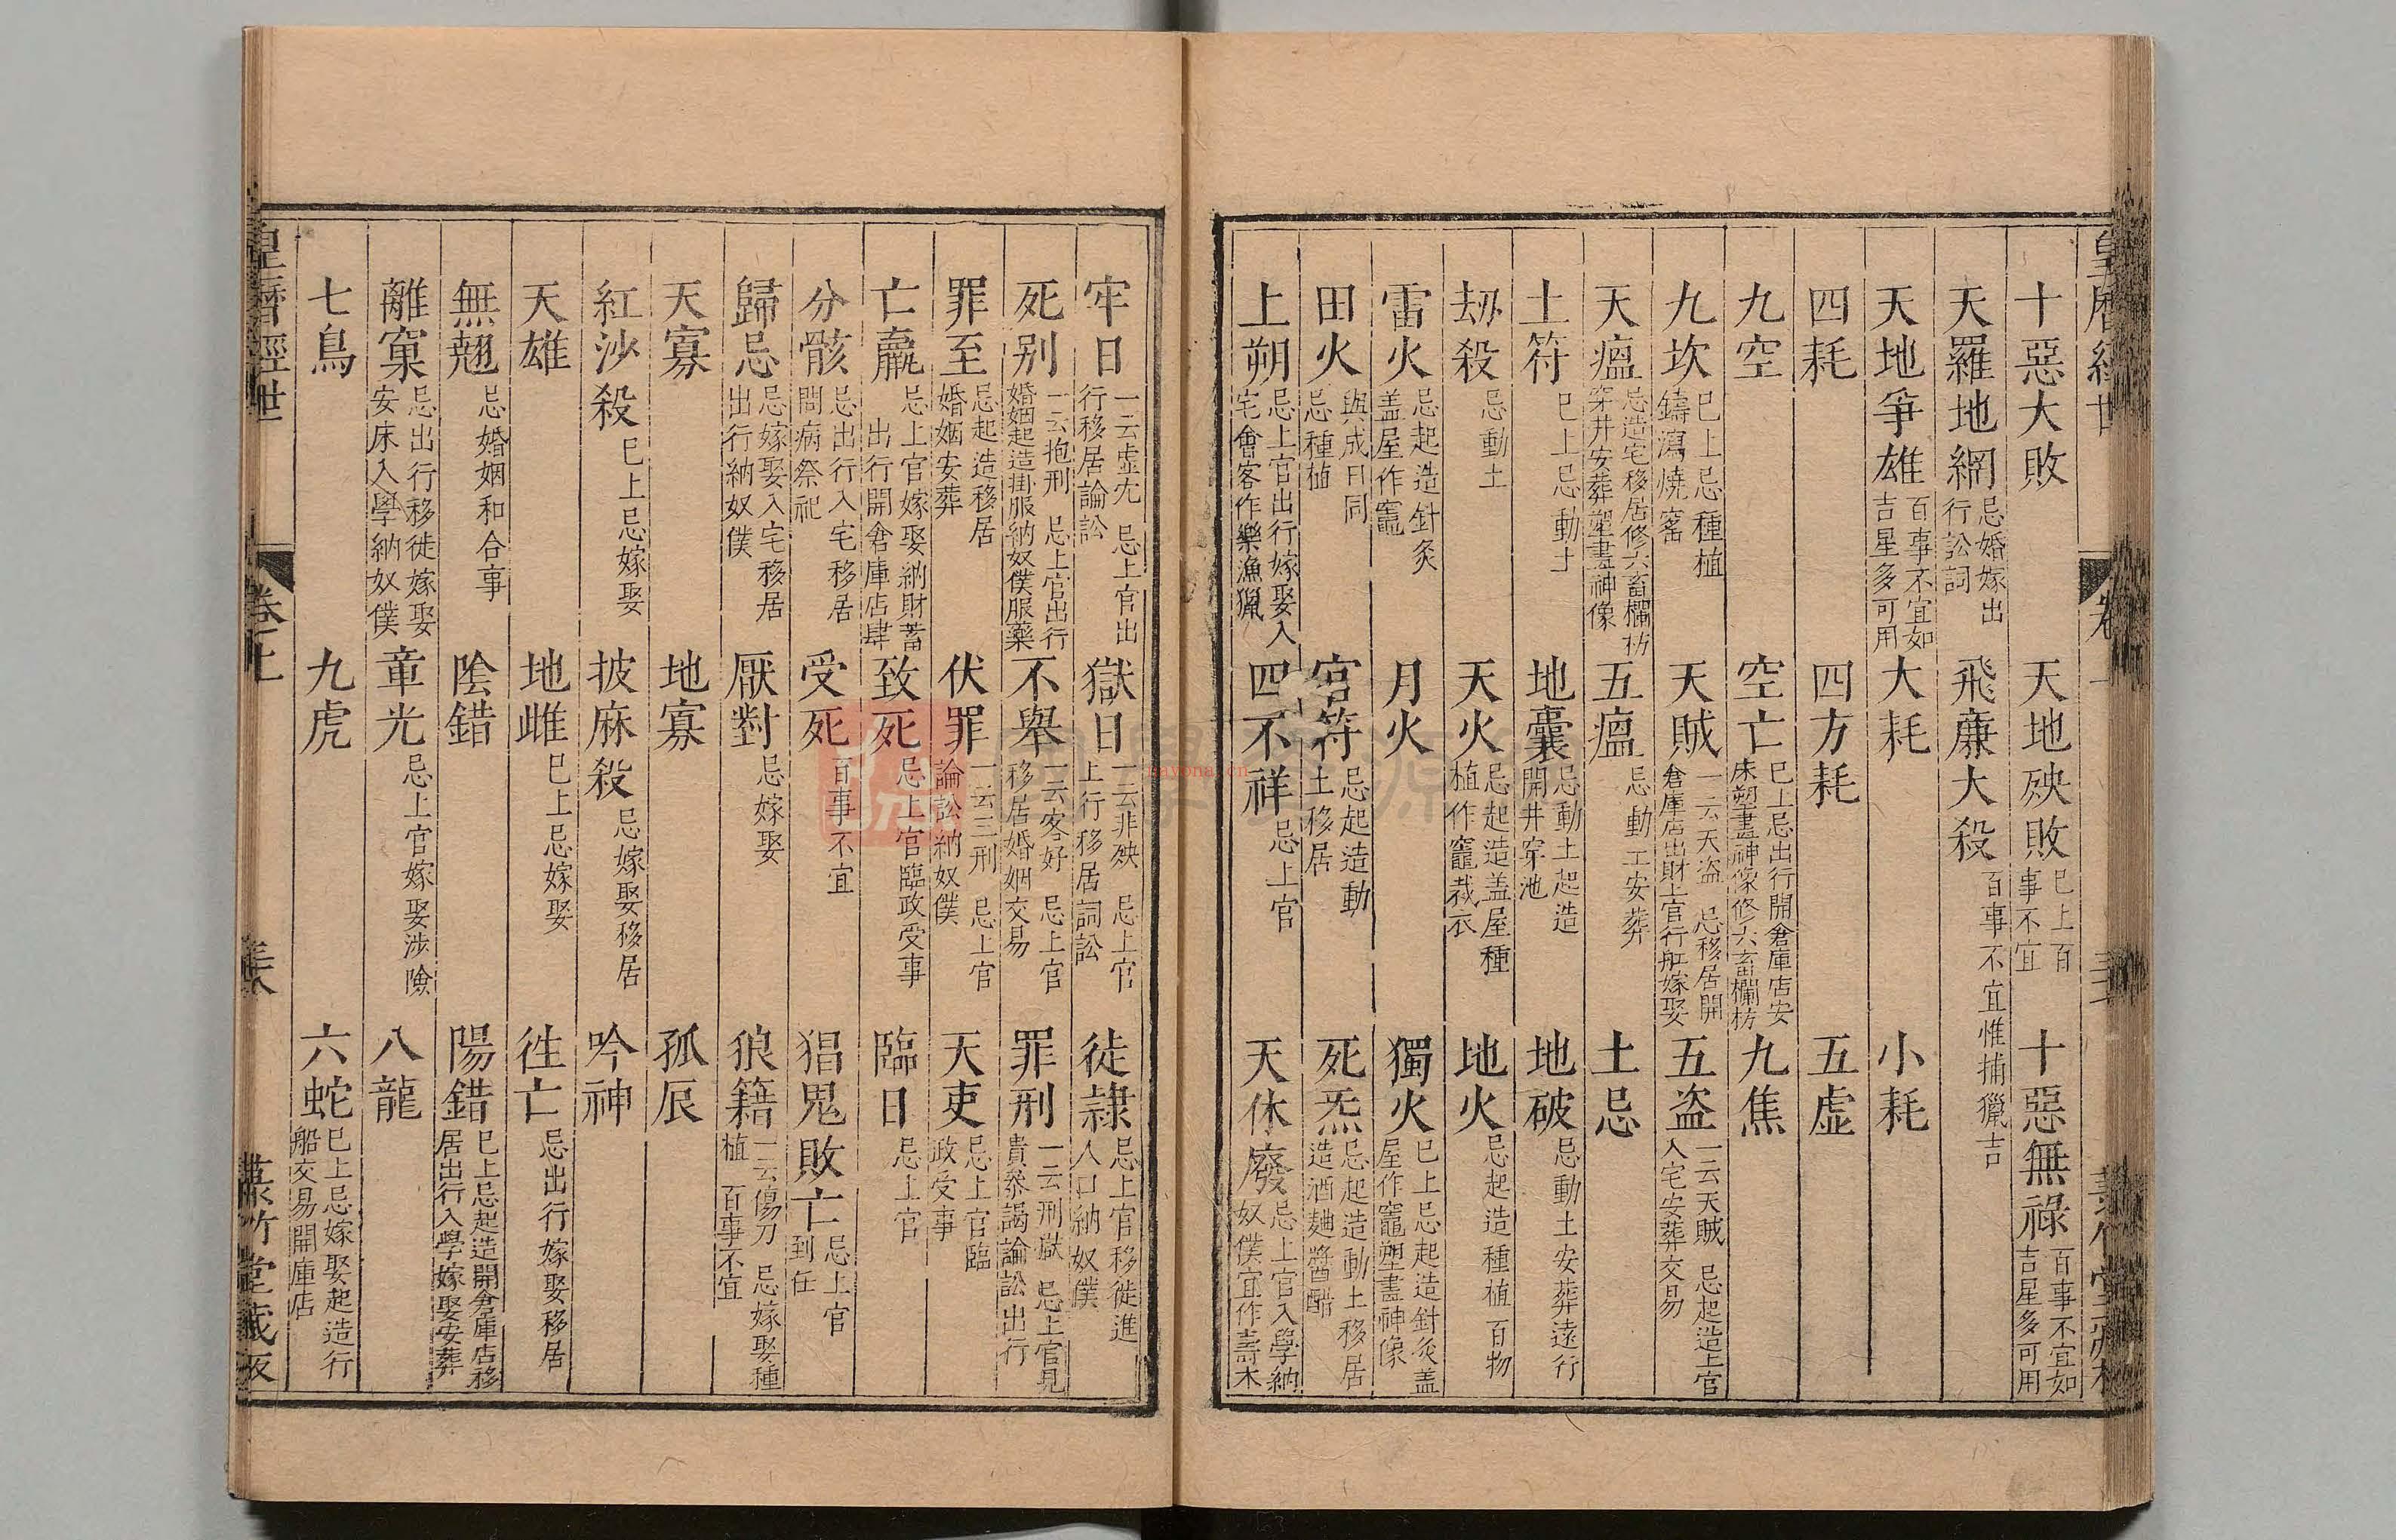 十惡大敗 天地殃敗巳上百事不宜 十惡無祿百事不宜如吉星多可用
天羅地網忌婚嫁出行訟詞 飛廉大殺百事不宜惟捕獵吉
天地爭雄百事不宜如吉星多可用 大耗 小耗
四耗 四方耗 五虛
九空 空亡巳上忌出行開倉庫店安床塑畫神像修六畜欄枋 九焦
九坎巳上忌種植鑄瀉燒窰 天賊一云天盗 忌移居開倉庫店出財上官行舡嫁娶 五盗一云天賊 忌起造上官入宅安葬交易
天瘟忌造宅移居修六畜欄枋穿井安葬塑畫神像 五瘟忌動工安葬 土忌
土符巳上忌動土 地囊忌動土起造開井穿池 地破忌動土安葬遠行
刼殺忌動土 天火忌起造盖屋種植作竈裁衣 地火忌起造種植百物
雷火忌起造針灸盖屋作竈 月火 獨火巳上忌起造針灸盖屋作竈塑畫神像
田火與成日同忌種植 官符忌起造動土移居 死炁忌起造動土移居造酒麯醬醋
上朔忌上官出行嫁娶入宅會客作樂漁獵 四不祥忌上官 天休廢忌上官入學納奴僕宜作壽木
牢日一云虛尤 忌上官出行移居論訟 獄日一云非殃 忌上官上行移居詞訟 徒隷忌上官移徙進人口納奴僕
死别一云抱刑 忌上官出行婚姻起造掛服納奴僕服藥 不舉一云客好 忌上官移居婚姻交易 罪刑一云刑獄 忌上官見貴叅謁論訟出行
罪至忌起造移居婚姻安葬 伏罪一云三刑 忌上官論訟納奴僕 天吏忌上官臨政受事
亡羸忌上官嫁娶納財蓄出行開倉庫店肆 致死忌上官臨政受事 臨日忌上官
分骸忌出行入宅移居問病祭祀 受死百事不宜 猖鬼敗亡忌上官到任
歸忌忌嫁娶入宅移居出行納奴僕 厭對忌嫁娶 狼籍一云傷刀 忌嫁娶種植 百事不宜
天寡 地寡 孤辰
紅沙殺巳上忌嫁娶 披麻殺忌嫁娶移居 吟神
天雄 地雌巳上忌嫁娶 徃亡忌出行嫁娶移居
無翹忌婚姻和合事 陰錯 陽錯巳上忌起造開倉庫店移居出行入學嫁娶安葬
離窠忌出行移徙嫁娶安床入學納奴僕 章光忌上官嫁娶涉險 八龍
七鳥 九虎 六蛇巳上忌嫁娶起造行船交易開庫店